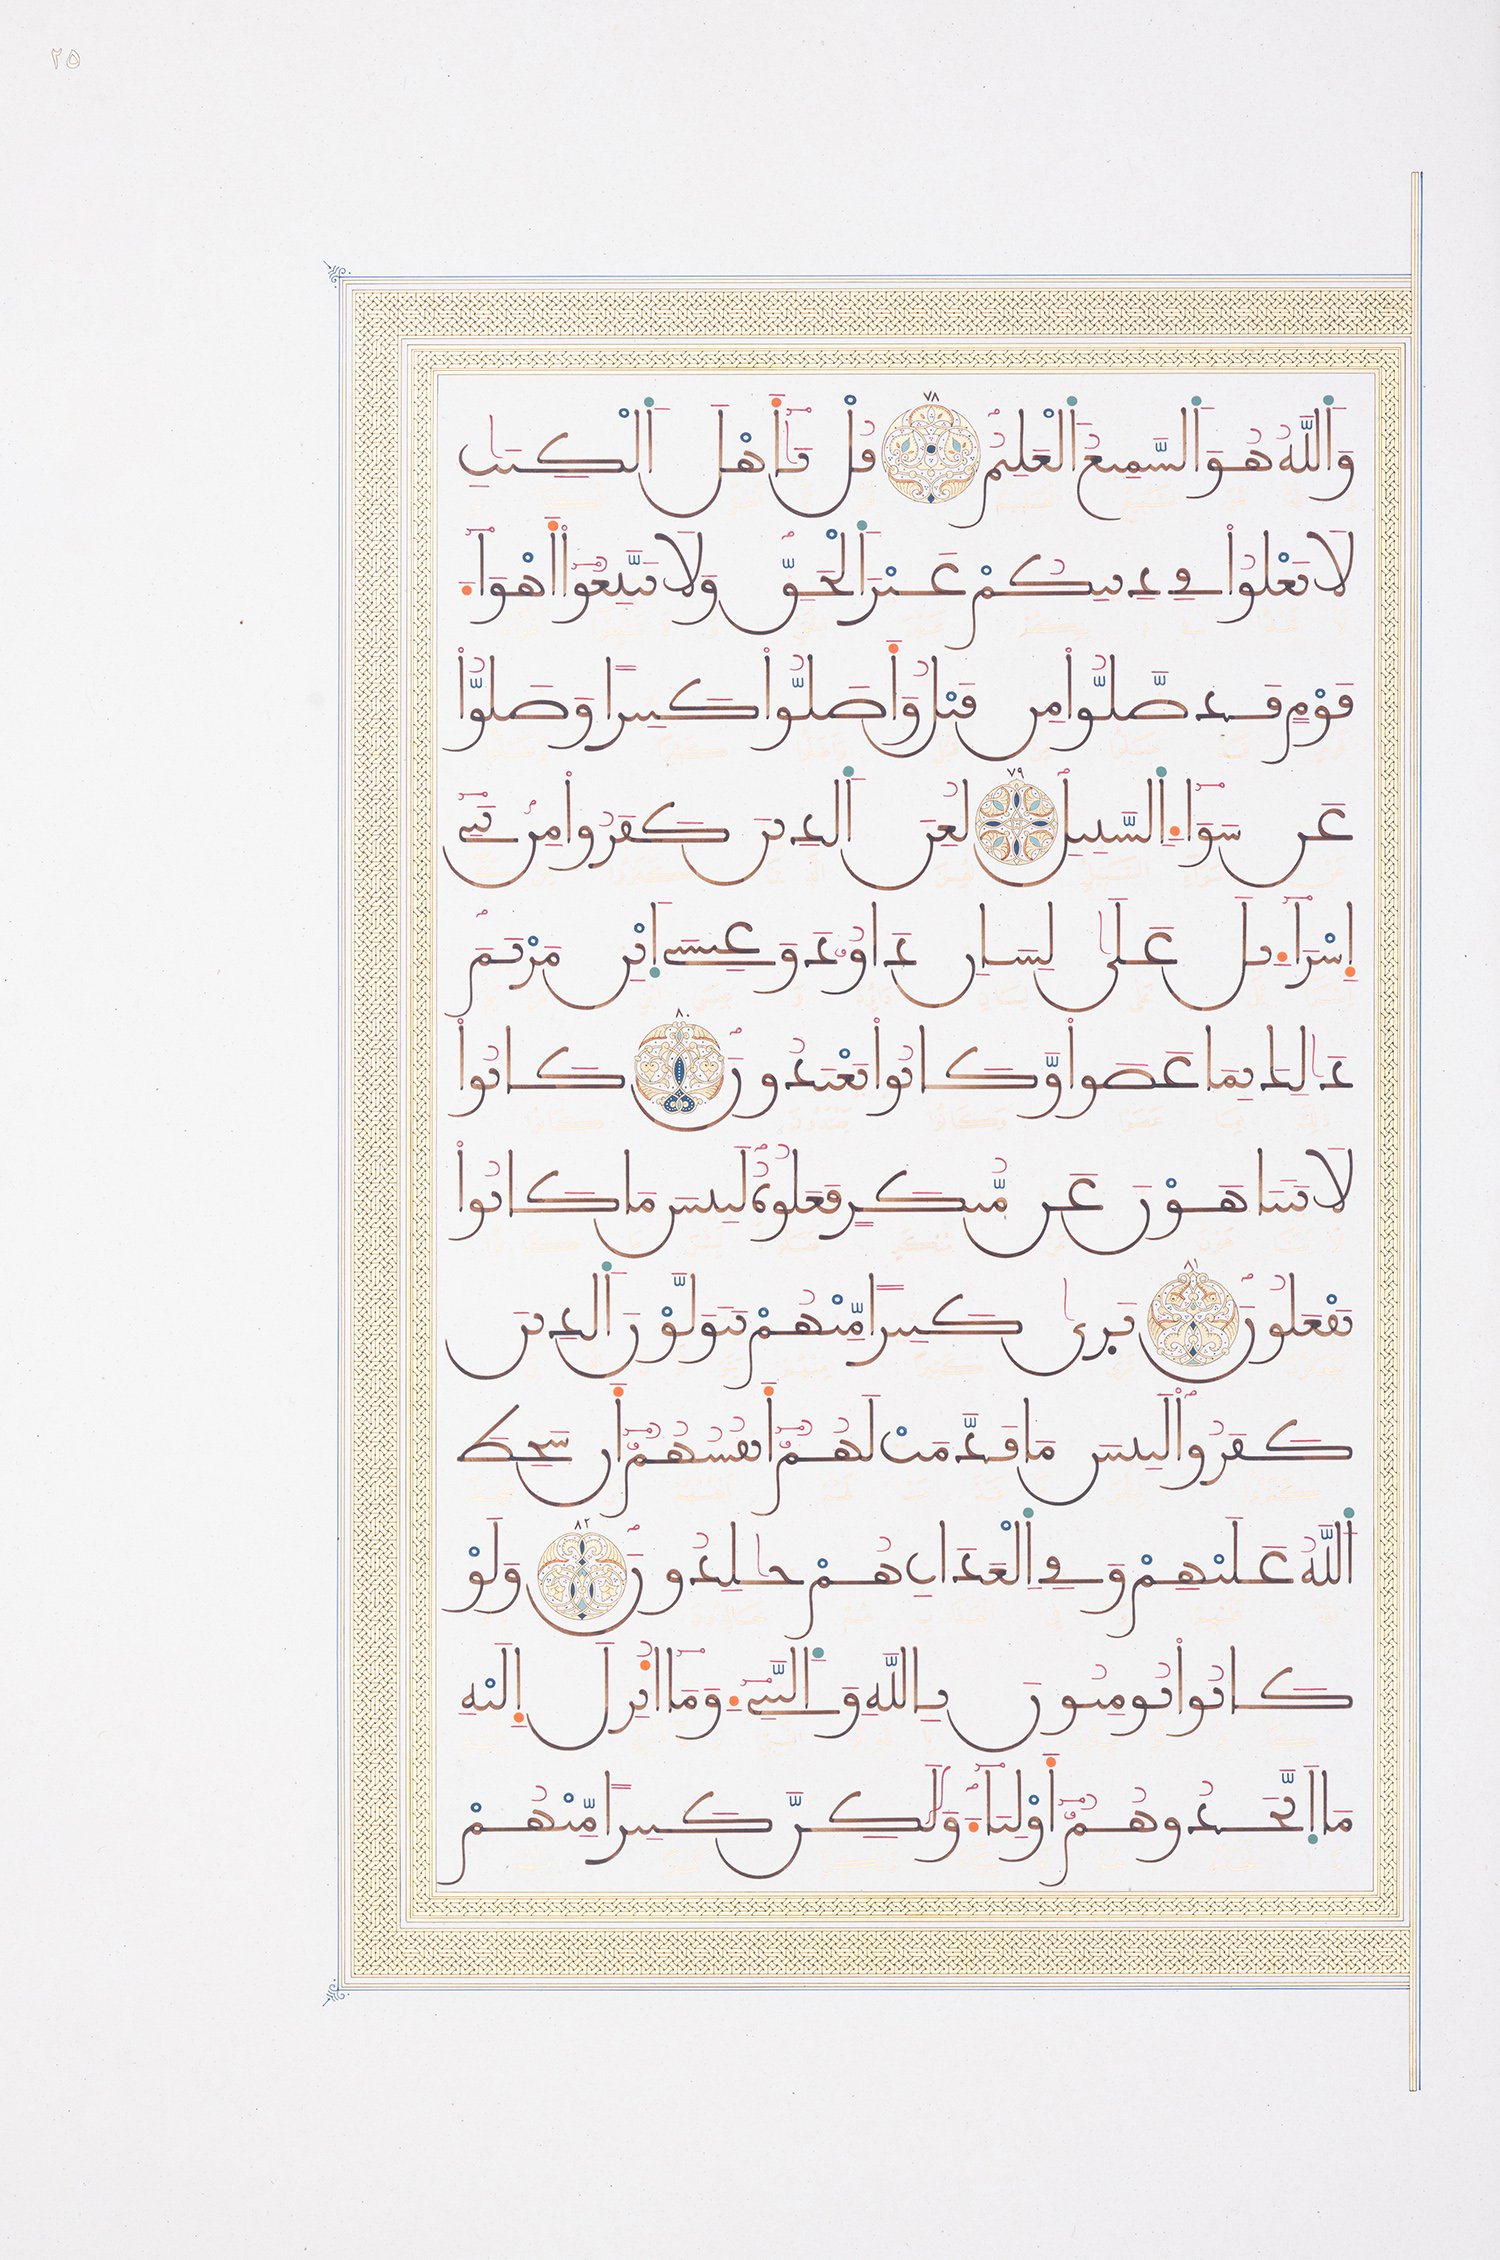 ٢٥
وَاللَّهُ هُوَ السَّمِيعُ الْعَلِيمُ ٧٨ قُلْ يَٰأَهْلَ الْكِتَٰبِ
لَا تَغْلُوا فِي دِينِكُمْ غَيْرَ الْحَقِّ وَلَا تَتَّبِعُوا أَهْوَآءَ
قَوْمٍ قَد ضَّلُّوا مِن قَبْلُ وَأَضَلُّوا كَثِيرًا وَضَلُّوا
عَن سَوَآءِ السَّبِيلِ ٧٩ لُعِنَ الَّذِينَ كَفَرُوا مِنۢ بَنِيٓ
إِسْرَآءِيلَ عَلَىٰ لِسَانِ دَاوُۥدَ وَعِيسَى ابْنِ مَرْيَمَ
ذَٰلِكَ بِمَا عَصَوا وَّكَانُوا يَعْتَدُونَ ٨٠ كَانُوا
لَا يَتَنَاهَوْنَ عَن مُّنكَرٍ فَعَلُوهُ لَبِيسَ مَا كَانُوا
يَفْعَلُونَ ٨١ تَرَىٰ كَثِيرًا مِّنْهُمْ يَتَوَلَّوْنَ الَّذِينَ
كَفَرُوا لَبِيسَ مَا قَدَّمَتْ لَهُمُۥٓ أَنفُسُهُمُۥٓ أَن سَخِطَ
اللَّهُ عَلَيْهِمْ وَفِي الْعَذَابِ هُمْ خَٰلِدُونَ ٨٢ وَلَوْ
كَانُوا يُومِنُونَ بِاللَّهِ وَالنَّبِيٓءِ وَمَآ أُنزِلَ إِلَيْهِ
مَا اتَّخَذُوهُمُۥٓ أَوْلِيَآءَ وَلَٰكِنَّ كَثِيرًا مِّنْهُمْ